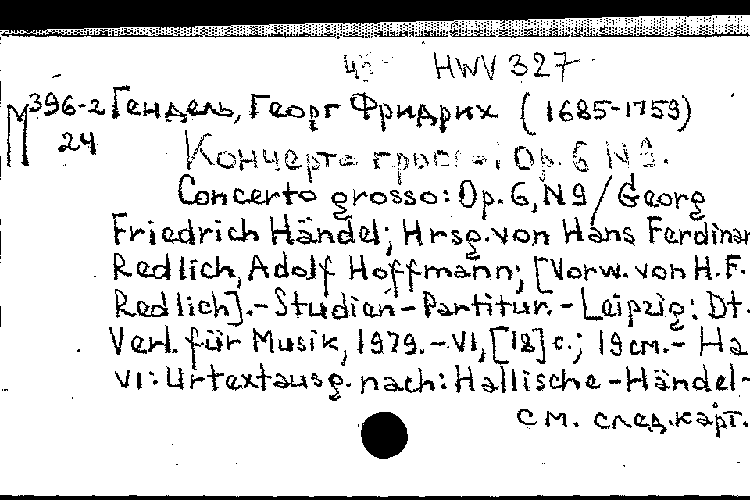 HWV 327
М 396-2 Гендель, Георг Фридрих (1685-1759)
24 Кончерто гроссо; Op. 6 N 9.
Concerto grosso: Op. 6, N 9 / Georg
Friedrich Händel; Hrsg. von Hans Ferdinan
Redlich, Adolf Hoffmann; [Vorw. von H.F.
Redlich]. - Studien-Partitur. - Leipzig: Dt.
Verl. für Musik, 1979. - VI, [18] c.; 19 см. - На
VI: Urtextausg. nach: Hallische-Händel-
см. след. карт.